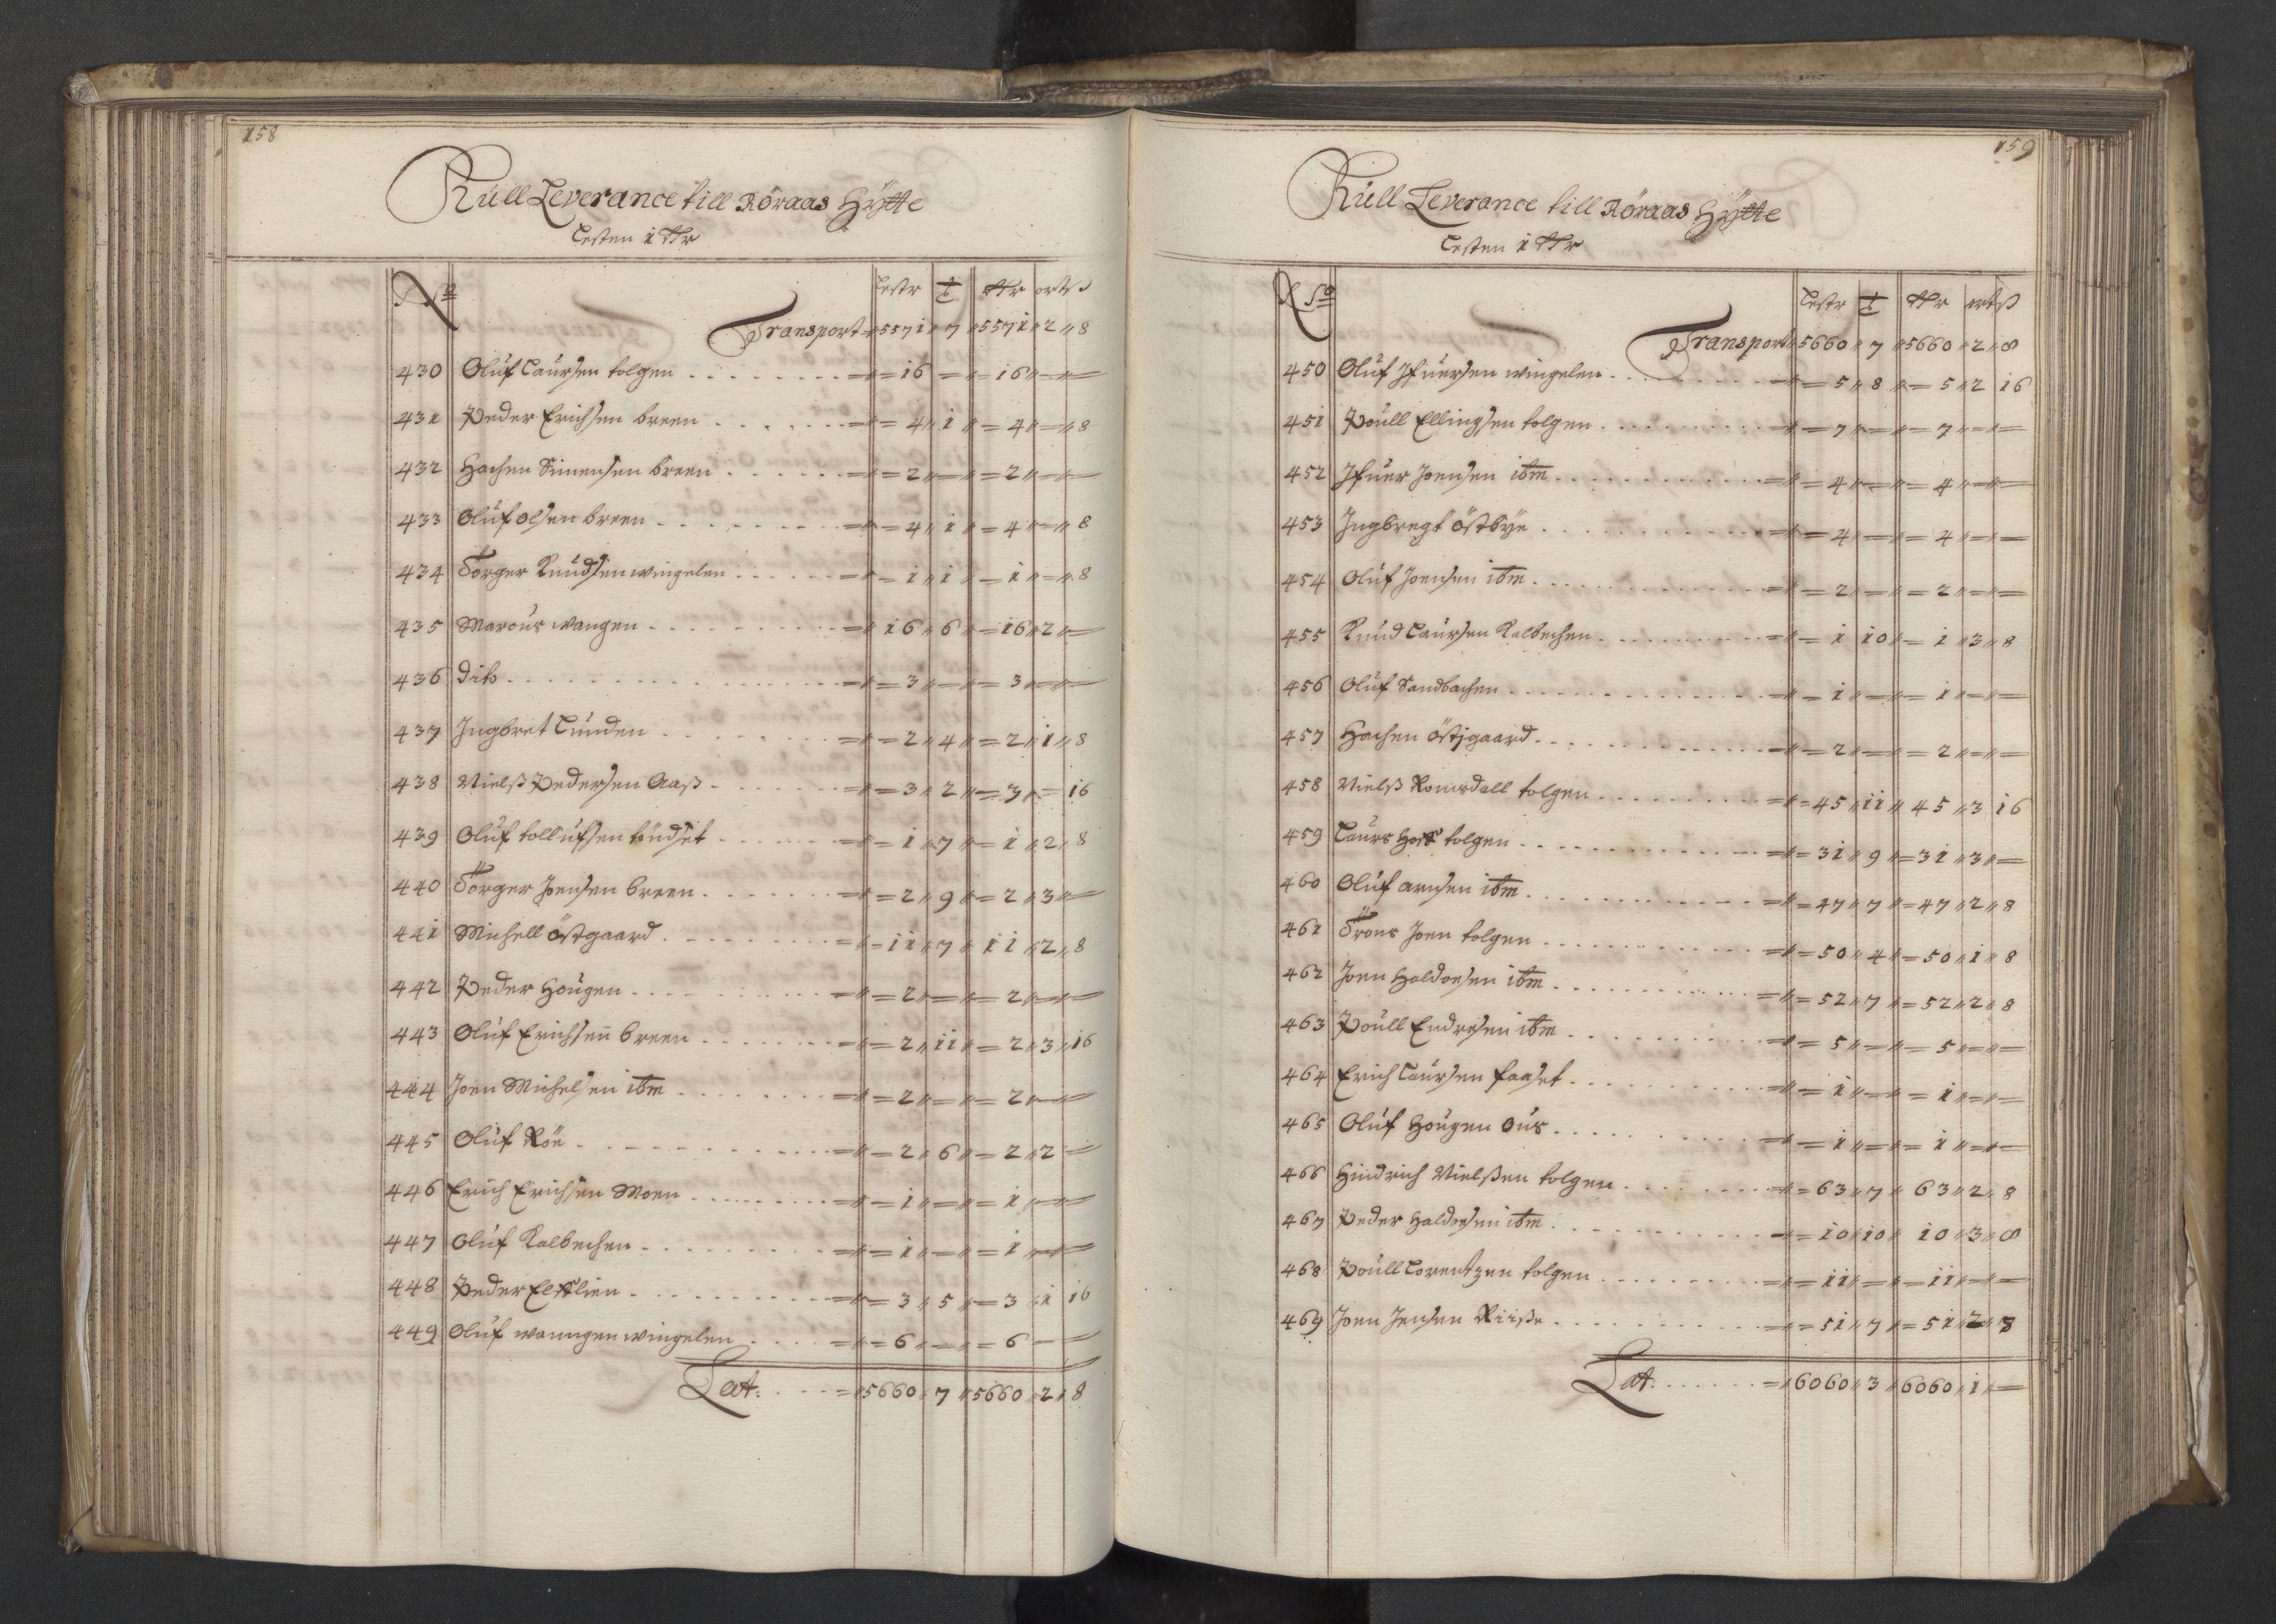 158
Kull Leverance till Röraas Hÿtte
Lesten 1 Rdr
No Lestr t Rdr ort s
Transport = 5571 " 7 " 5571 " 2 " 8
430 Oluf Laursen tolgen . . . = 16 " — " = 16 " — " —
431 Peder Erichsen breen . . . = 4 " 1 " = 4 " — " 8
432 Hachen Simensen breen . . . = 2 " — " = 2 " — " —
433 Oluf olsen breen . . . = 4 " 1 " = 4 " — " 8
434 Torger Knudsen wingelen . . . = 1 " 1 " = 1 " — " 8
435 Marcus wangen . . . = 16 " 6 " = 16 " 2 " —
436 dito . . . = 3 " — " = 3 " — " —
437 Ingbret Lunden . . . = 2 " 4 " = 2 " 1 " 8
438 Nielß Pedersen Aaß . . . = 3 " 2 " = 3 " — 16
439 Oluf tollufsen töndset . . . = 1 " 7 " = 1 " 2 " 8
440 Torger Joensen breen . . . = 2 " 9 " = 2 " 3 " —
441 Michell östgaard . . . = 11 " 7 " 11 " 2 " 8
442 Peder Hougen . . . = 2 " — " = 2 " — " —
443 Oluf Erichsen breen . . . = 2 " 11 " = 2 " 3 " 16
444 Joen Michelsen itm . . . = 2 " — " = 2 " — " —
445 Oluf Röe . . . = 2 " 6 " = 2 " 2 —
446 Erich Erichsen Moen . . . = 1 " — " = 1 " — " —
447 Oluf Kalbechen . . . = 1 " — " = 1 " — " —
448 Peder . . . = 3 " 5 " = 3 " 1 16
449 Oluf wanngen wingelen . . . = 6 " — " = 6 — —
Lat: . . . = 5660 " 7 " 5660 " 2 " 8
159
Kull Leverance till Röraas Hÿtte
Lesten 1 Rdr
No Lestr t Rdr ort ß
Transport " 5660 " 7 " 5660 " 2 " 8
450 Oluf Ifuersen wingelen . . . = 5 " 8 " = 5 " 2 16
451 Poull Ellingsen tolgen . . . = 7 " — " = 7 " — " —
452 Ifuer Joensen itm . . . = 4 " — " = 4 " — " —
453 Ingbregt östbÿe . . . = 4 " — " = 4 " — " —
454 Oluf Joensen itm . . . = 2 " — " = 2 " — " —
455 Knud Laursen Kalbechen . . . = 1 10 " = 1 " 3 " 8
456 Oluf Sandbachen . . . = 1 " — " = 1 " — " —
457 Hachen östgaard . . . = 2 " — " = 2 " — " —
458 Nielß Romsdall tolgen . . . = 45 " 11 " 45 " 3 16
459 Laurs tolgen . . . = 31 " 9 " = 31 " 3 " —
460 Oluf arnsen itm . . . = 47 " 7 " = 47 " 2 " 8
461 Trons Joen tolgen . . . = 50 " 4 " = 50 " 1 " 8
462 Joen Haldoesen itm . . . = 52 " 7 " = 52 " 2 " 8
463 Poull Endresen itm . . . = 5 " — " = 5 " — " —
464 Erich Laursen faaset . . . = 1 " — " = 1 " — " —
465 Oluf Hougen Ous . . . = 1 " — " = 1 " — " —
466 Hindrich Nielßen tolgen . . . = 63 " 7 " 63 " 2 " 8
467 Peder Haldoesen itm . . . = 10 " 10 " 10 " 3 " 8
468 Poull Lorentzen tolgen . . . = 11 " — " = 11 " — " —
469 Joen Jensen Riiße . . . = 51 " 7 " = 51 " 2 " 8
Lat: . . . = 6060 " 3 " 6060 " 1 " —